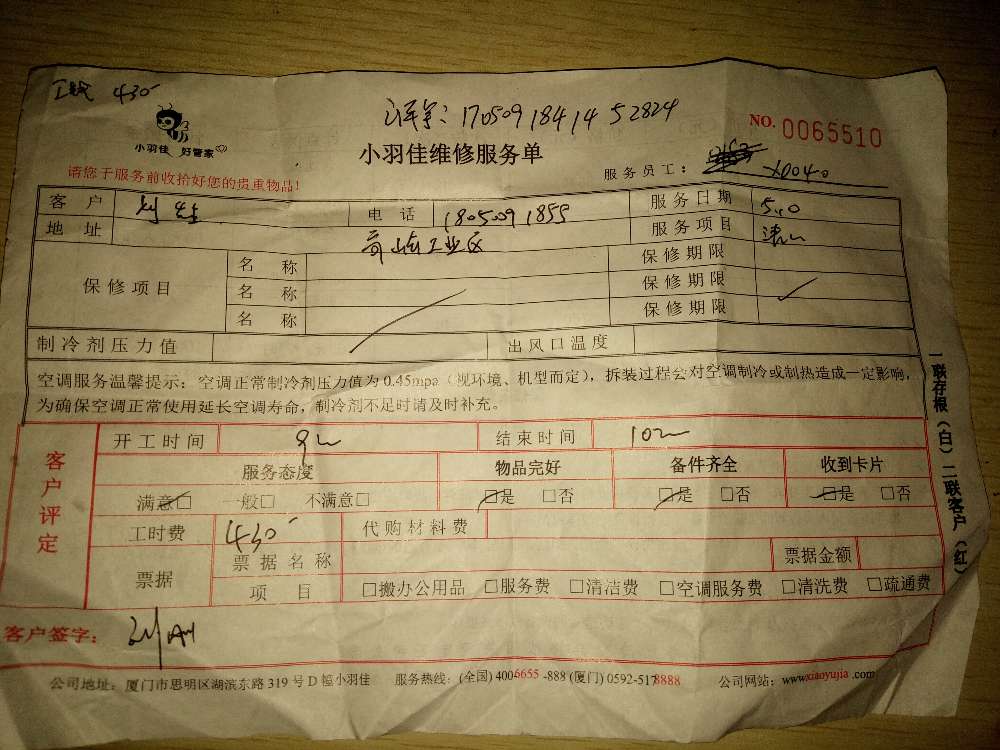 430
170509184145 2824
小羽佳 好管家
NO. 0065510
小羽佳维修服务单
请您于服务前收拾好您的贵重物品!
服务员工: X0040
客户 电话 18050918559 服务日期 5.10
地址 工业区 服务项目
保修项目 名称 保修期限
名称 保修期限
名称 保修期限
制冷剂压力值 出风口温度
空调服务温馨提示:空调正常制冷剂压力值为0.45mpa(视环境、机型而定),拆装过程会对空调制冷或制热造成一定影响,
为确保空调正常使用延长空调寿命,制冷剂不足时请及时补充。
一联存根(白)二联客户(红)
客户评定
开工时间 9 结束时间 10
服务态度 物品完好 备件齐全 收到卡片
满意□ 一般□ 不满意□ □是 □否 □是 □否 □是 □否
工时费 430 代购材料费
票据 票据名称 票据金额
项目 □搬办公用品 □服务费 □清洁费 □空调服务费 □清洗费 □疏通费
客户签字:
公司地址:厦门市思明区湖滨东路319号D幢小羽佳 服务热线:(全国)4006655-888(厦门)0592-5178888 公司网站:www.xiaoyujia.com